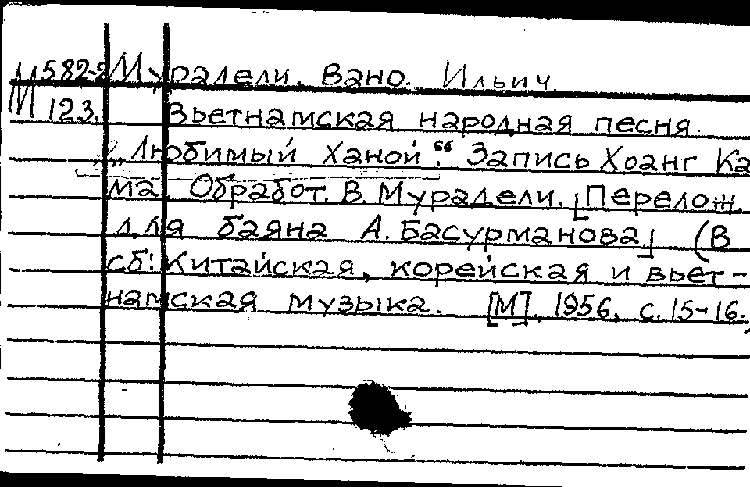 М582-2 Мурадели, Вано Ильич
М 123. Вьетнамская народная песня
„Любимый Ханой“. Запись Хоанг Ка
ма. Обработ. В. Мурадели. [Перелож.
для баяна А. Басурманова] (В
сб: Китайская, корейская и вьет-
намская музыка. [М], 1956, с. 15-16.